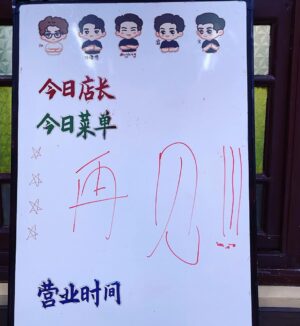 今日店长
今日菜单
再见!!!
营业时间